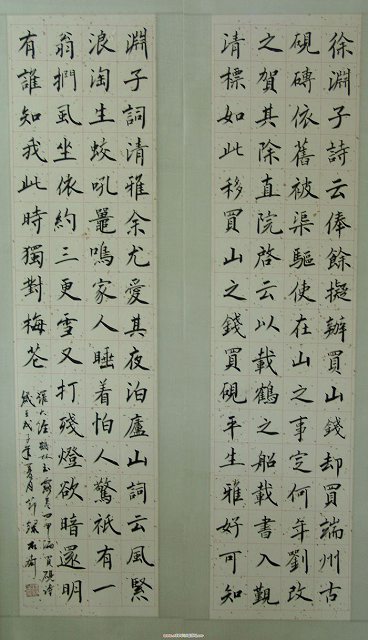 徐淵子詩云俸餘擬辦買山錢却買端州古
硯磚依舊被渠驅使在山之事定何年劉改
之賀其除直院啓云以載鶴之船載書入覲
清標如此移買山之錢買硯平生雅好可知
淵子詞清雅余尤愛其夜泊廬山詞云風緊
浪淘生蛟吼鼉鳴家人睡着怕人驚祇有一
翁捫虱坐依約三更雪又打殘燈欲暗還明
有誰知我此時獨對梅花
羅大經鶴林玉露卷四甲編買硯詩
戊子年夏月